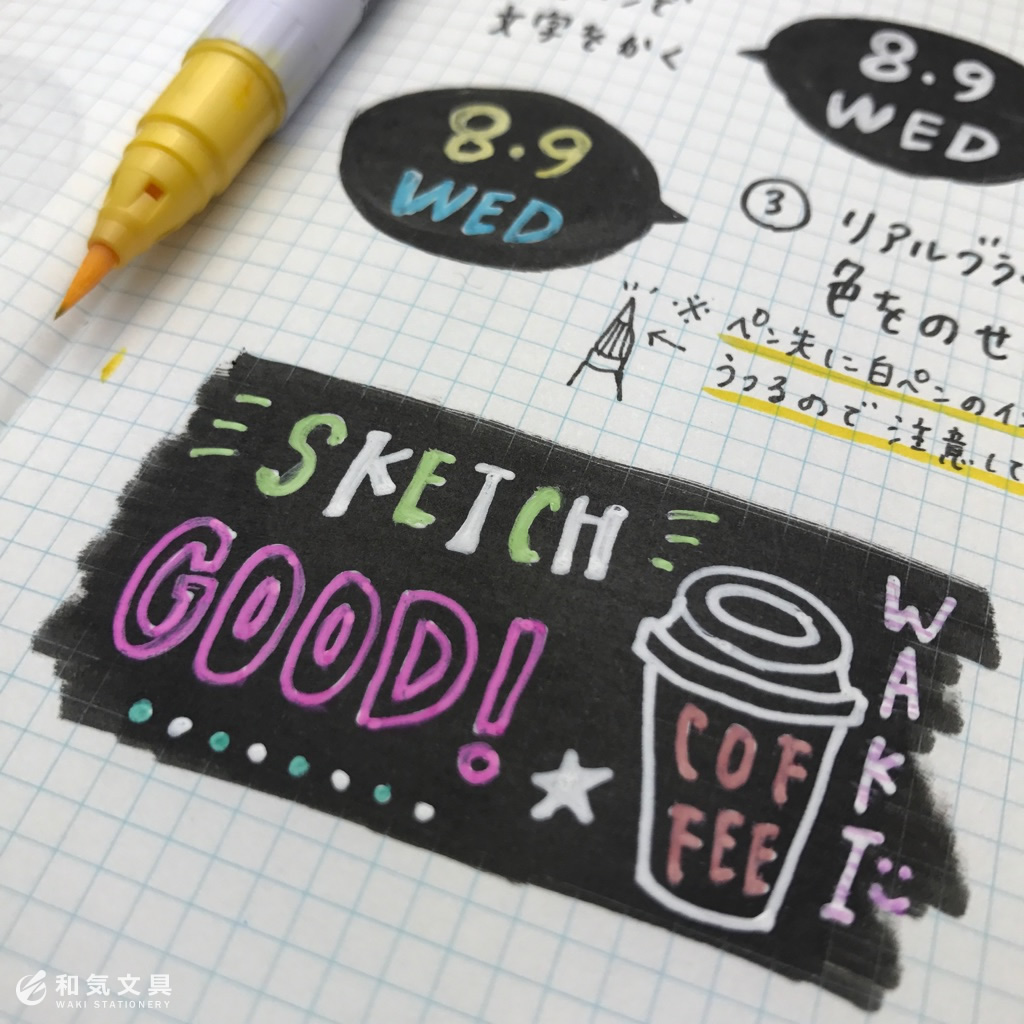 文字をかく
8.9
WED
8.9
WED
③ リアルブラ
色をのせ
※ ペン先に白ペンのイ
うつるので注意して
SKETCH
GOOD!
COF
FEE
WAKI
和気文具
WAKI STATIONERY